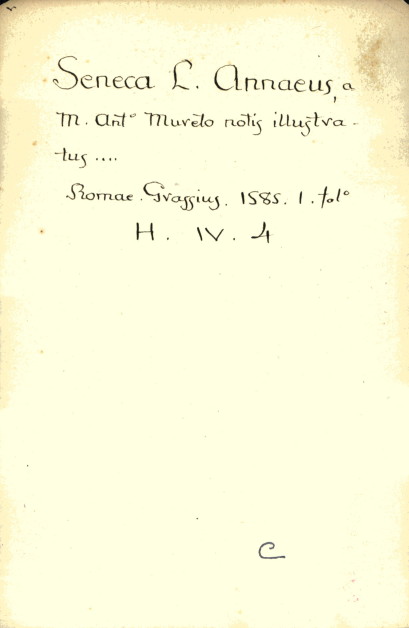 Seneca L. Annaeus, a
M. Antº Mureto notis illustra-
tus ....
Romae. Grassius. 1585. 1. folº
H. IV. 4
C